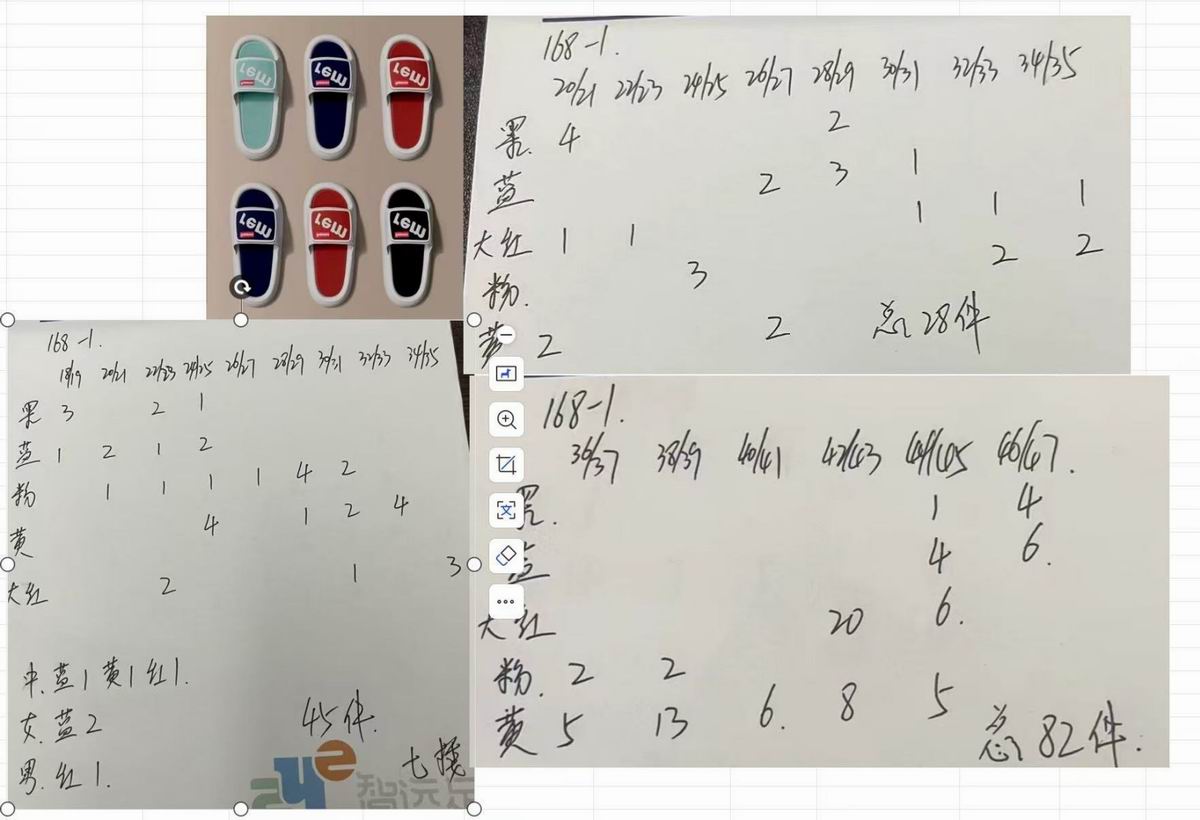 168-1.
20/21 22/23 24/25 26/27 28/29 30/31 32/33 34/35
黑. 4 2
蓝 2 3 1
大红 1 1 1 1 1
粉. 3 2 2
黄 2 2 总28件
168-1.
18/19 20/21 22/23 24/25 26/27 28/29 30/31 32/33 34/35
黑 3 2 1
蓝 1 2 1 2
粉 1 1 1 1 4 2
黄 4 1 2 4
大红 2 1 3
中.蓝1 黄1 红1.
女.蓝2
45件.
男.红1.
七楼
智远
168-1.
36/37 38/39 40/41 42/43 44/45 46/47.
黑. 1 4
蓝 4 6.
大红 20 6.
粉. 2 2
黄 5 13 6. 8 5
总82件.